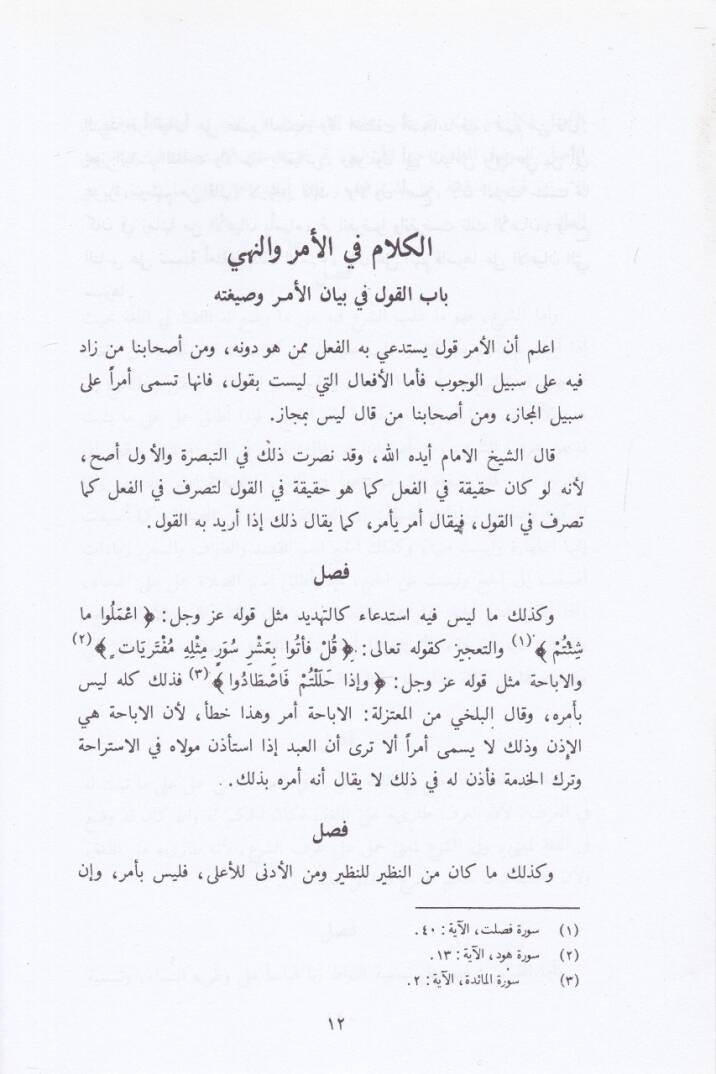 الكلام في الأمر والنهي
باب القول في بيان الأمر وصيغته
اعلم أن الأمر قول يستدعي به الفعل ممن هو دونه، ومن أصحابنا من زاد
فيه على سبيل الوجوب فأما الأفعال التي ليست بقول، فانها تسمى أمراً على
سبيل المجاز، ومن أصحابنا من قال ليس بمجاز.
قال الشيخ الامام أيده الله، وقد نصرت ذلك في التبصرة والأول أصح،
لأنه لو كان حقيقة في الفعل كما هو حقيقة في القول لتصرف في الفعل كما
تصرف في القول، فيقال أمر يأمر، كما يقال ذلك إذا أريد به القول.
فصل
وكذلك ما ليس فيه استدعاء كالتهديد مثل قوله عز وجل: ﴿ اعْمَلُوا ما
شِئْتُمْ ﴾(١) والتعجيز كقوله تعالى: ﴿قُلْ فأتُوا بِعَشْرِ سُوَرٍ مِثْلِهِ مُفْتَرَيَات ٍ ﴾(٢)
والاباحة مثل قوله عز وجل: ﴿ وإذا حَلَلْتُمْ فَاصْطَادُوا ﴾(٣) فذلك كله ليس
بأمره، وقال البلخي من المعتزلة: الاباحة أمر وهذا خطأ، لأن الاباحة هي
الإذن وذلك لا يسمى أمراً ألا ترى أن العبد إذا استأذن مولاه في الاستراحة
وترك الخدمة فأذن له في ذلك لا يقال أنه أمره بذلك.
فصل
وكذلك ما كان من النظير للنظير ومن الأدنى للأعلى، فليس بأمر، وإن
(١) سورة فصلت، الآية: ٤٠.
(٢) سورة هود، الآية: ١٣.
(٣) سورة المائدة، الآية: ٢.
١٢